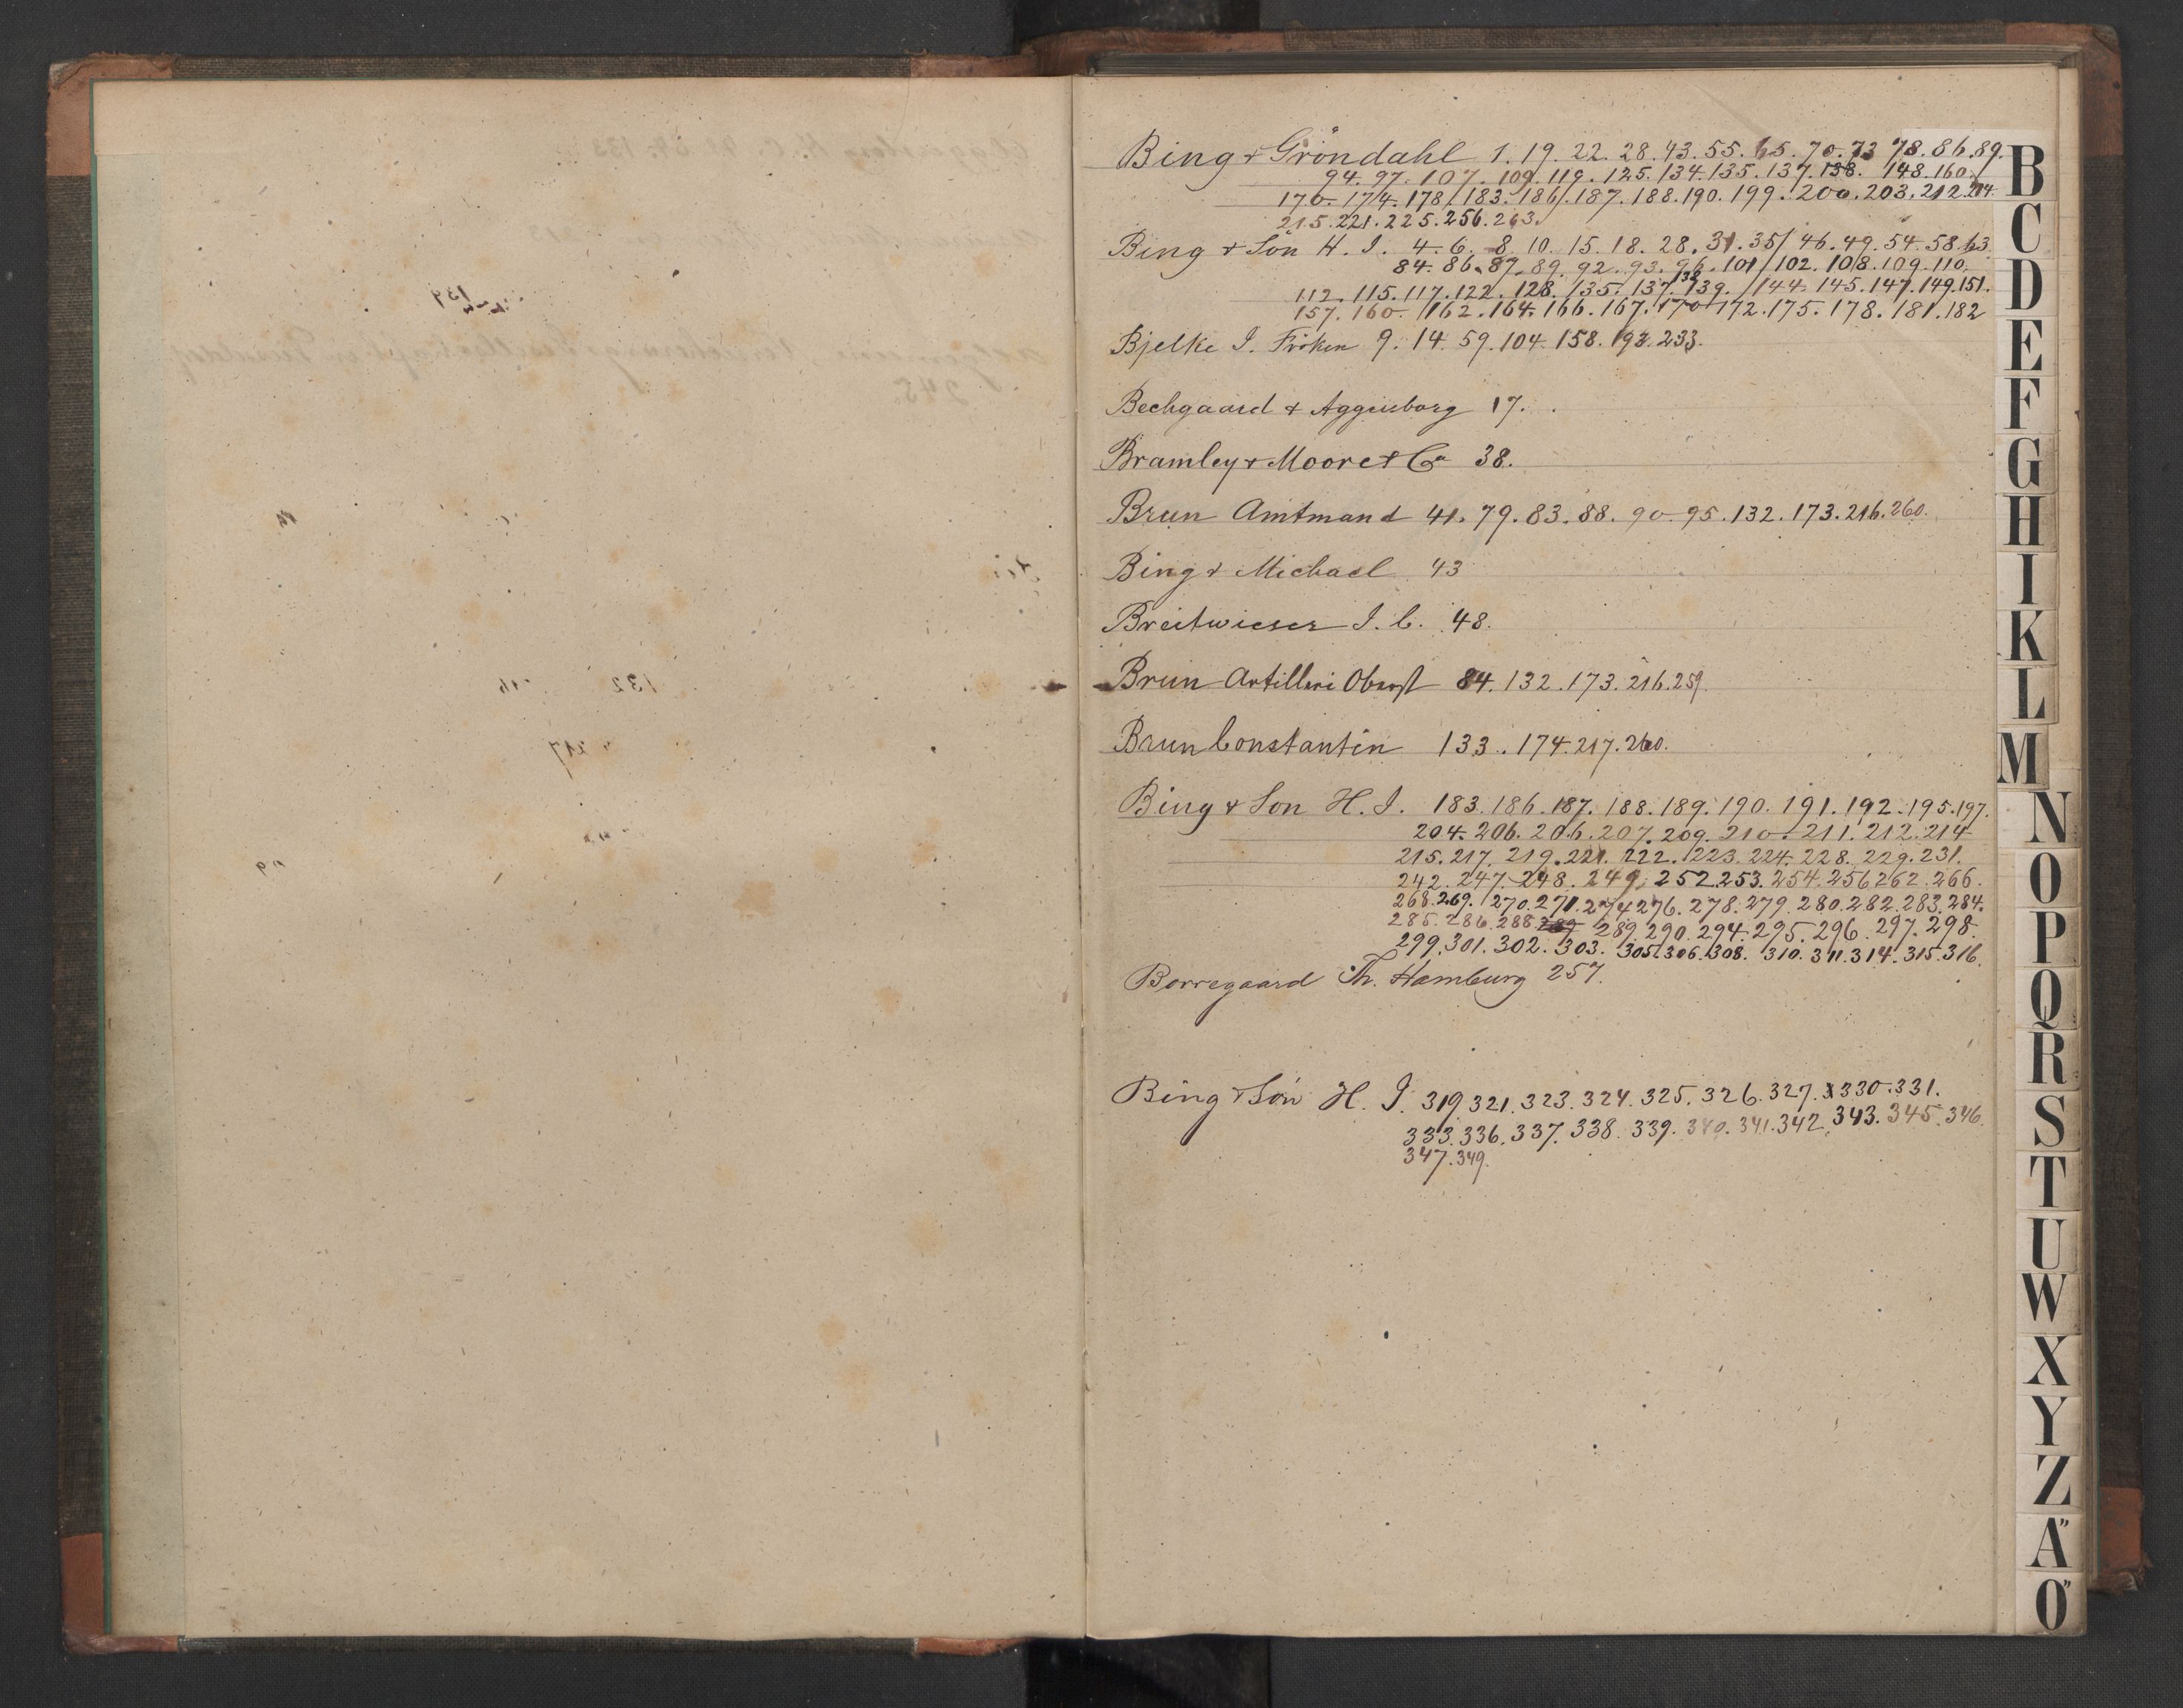 Bing & Gröndahl 1. 19. 22. 28. 43. 55. 65. 70. 73 78. 86. 89.
94. 97. 107. 109. 119. 125. 134. 135. 137. 138. 148. 160.
170. 174. 178. 183. 186. 187. 188. 190. 199. 200. 203. 212. 214.
215. 221. 225. 256. 263.
Bing & Sön H. J. 4. 6. 8. 10. 15. 18. 28. 31. 35. 46. 49. 54. 58. 63.
84. 86. 87. 89. 92. 93. 96. 101. 102. 108. 109. 110.
112. 115. 117. 122. 128. 135. 137. 138 139. 144. 145. 147. 149. 151.
157. 160. 162. 164. 166. 167. 170 172. 175. 178. 181. 182
Bjelke J. Fröken 9. 14. 59. 104. 158. 193. 233.
Bechgaard & Aggersborg 17.
Bramley & Moore & Co 38.
Brun Amtmand 41. 79. 83. 88. 90. 95. 132. 173. 216. 260.
Bing & Michael 43
Breitwieser J. C. 48.
Brun Artilleri Oberst 84. 132. 173. 216. 259.
Brun Constantin 133. 174. 217. 260.
Bing & Son H. J. 183. 186. 187. 188. 189. 190. 191. 192. 195. 197.
204. 206. 206. 207. 209. 210. 211. 212. 214
215. 217. 219. 221. 222. 223. 224. 228. 229. 231.
242. 247. 248. 249. 252. 253. 254. 256. 262. 266.
268. 269. 270. 271. 274 276. 278. 279. 280. 282. 283. 284.
285. 286. 288. 289. 290. 294. 295. 296. 297. 298.
299. 301. 302. 303. 305. 306. 308. 310. 311. 314. 315. 316.
Borregaard Th. Hamburg 257.
Bing & Sön H. J. 319. 321. 323. 324. 325. 326. 327. 330. 331.
333. 336. 337. 338. 339. 340. 341. 342. 343. 345. 346.
347. 349.
B
C
D
E
F
G
H
I
K
L
M
N
O
P
Q
R
S
T
U
W
X
Y
Z
Ä
Ö